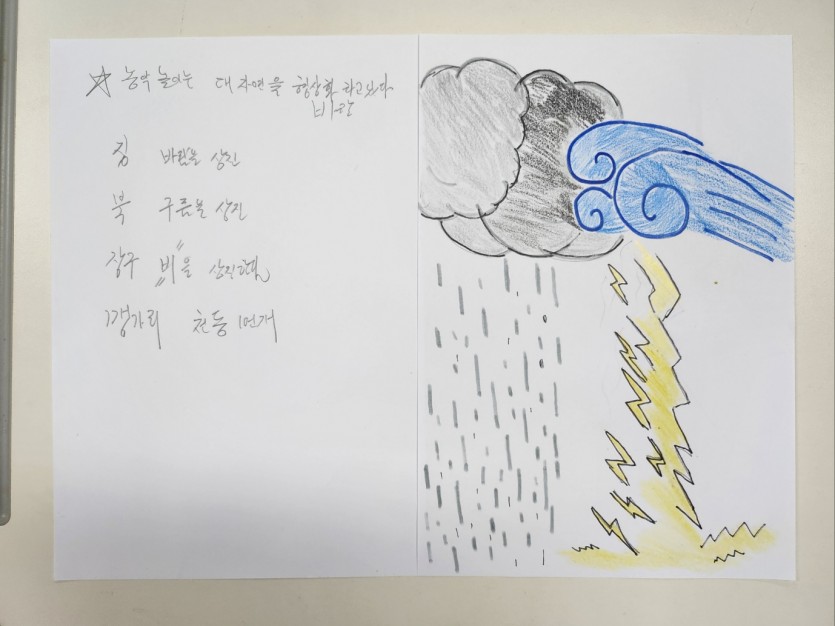 ☆ 농악 놀이는 대 자연을 형상화 라고 보다
바람
징 바람을 상징
북 구름을 상징
장구 "비"을 상징한다
꽹가리 천둥 번개